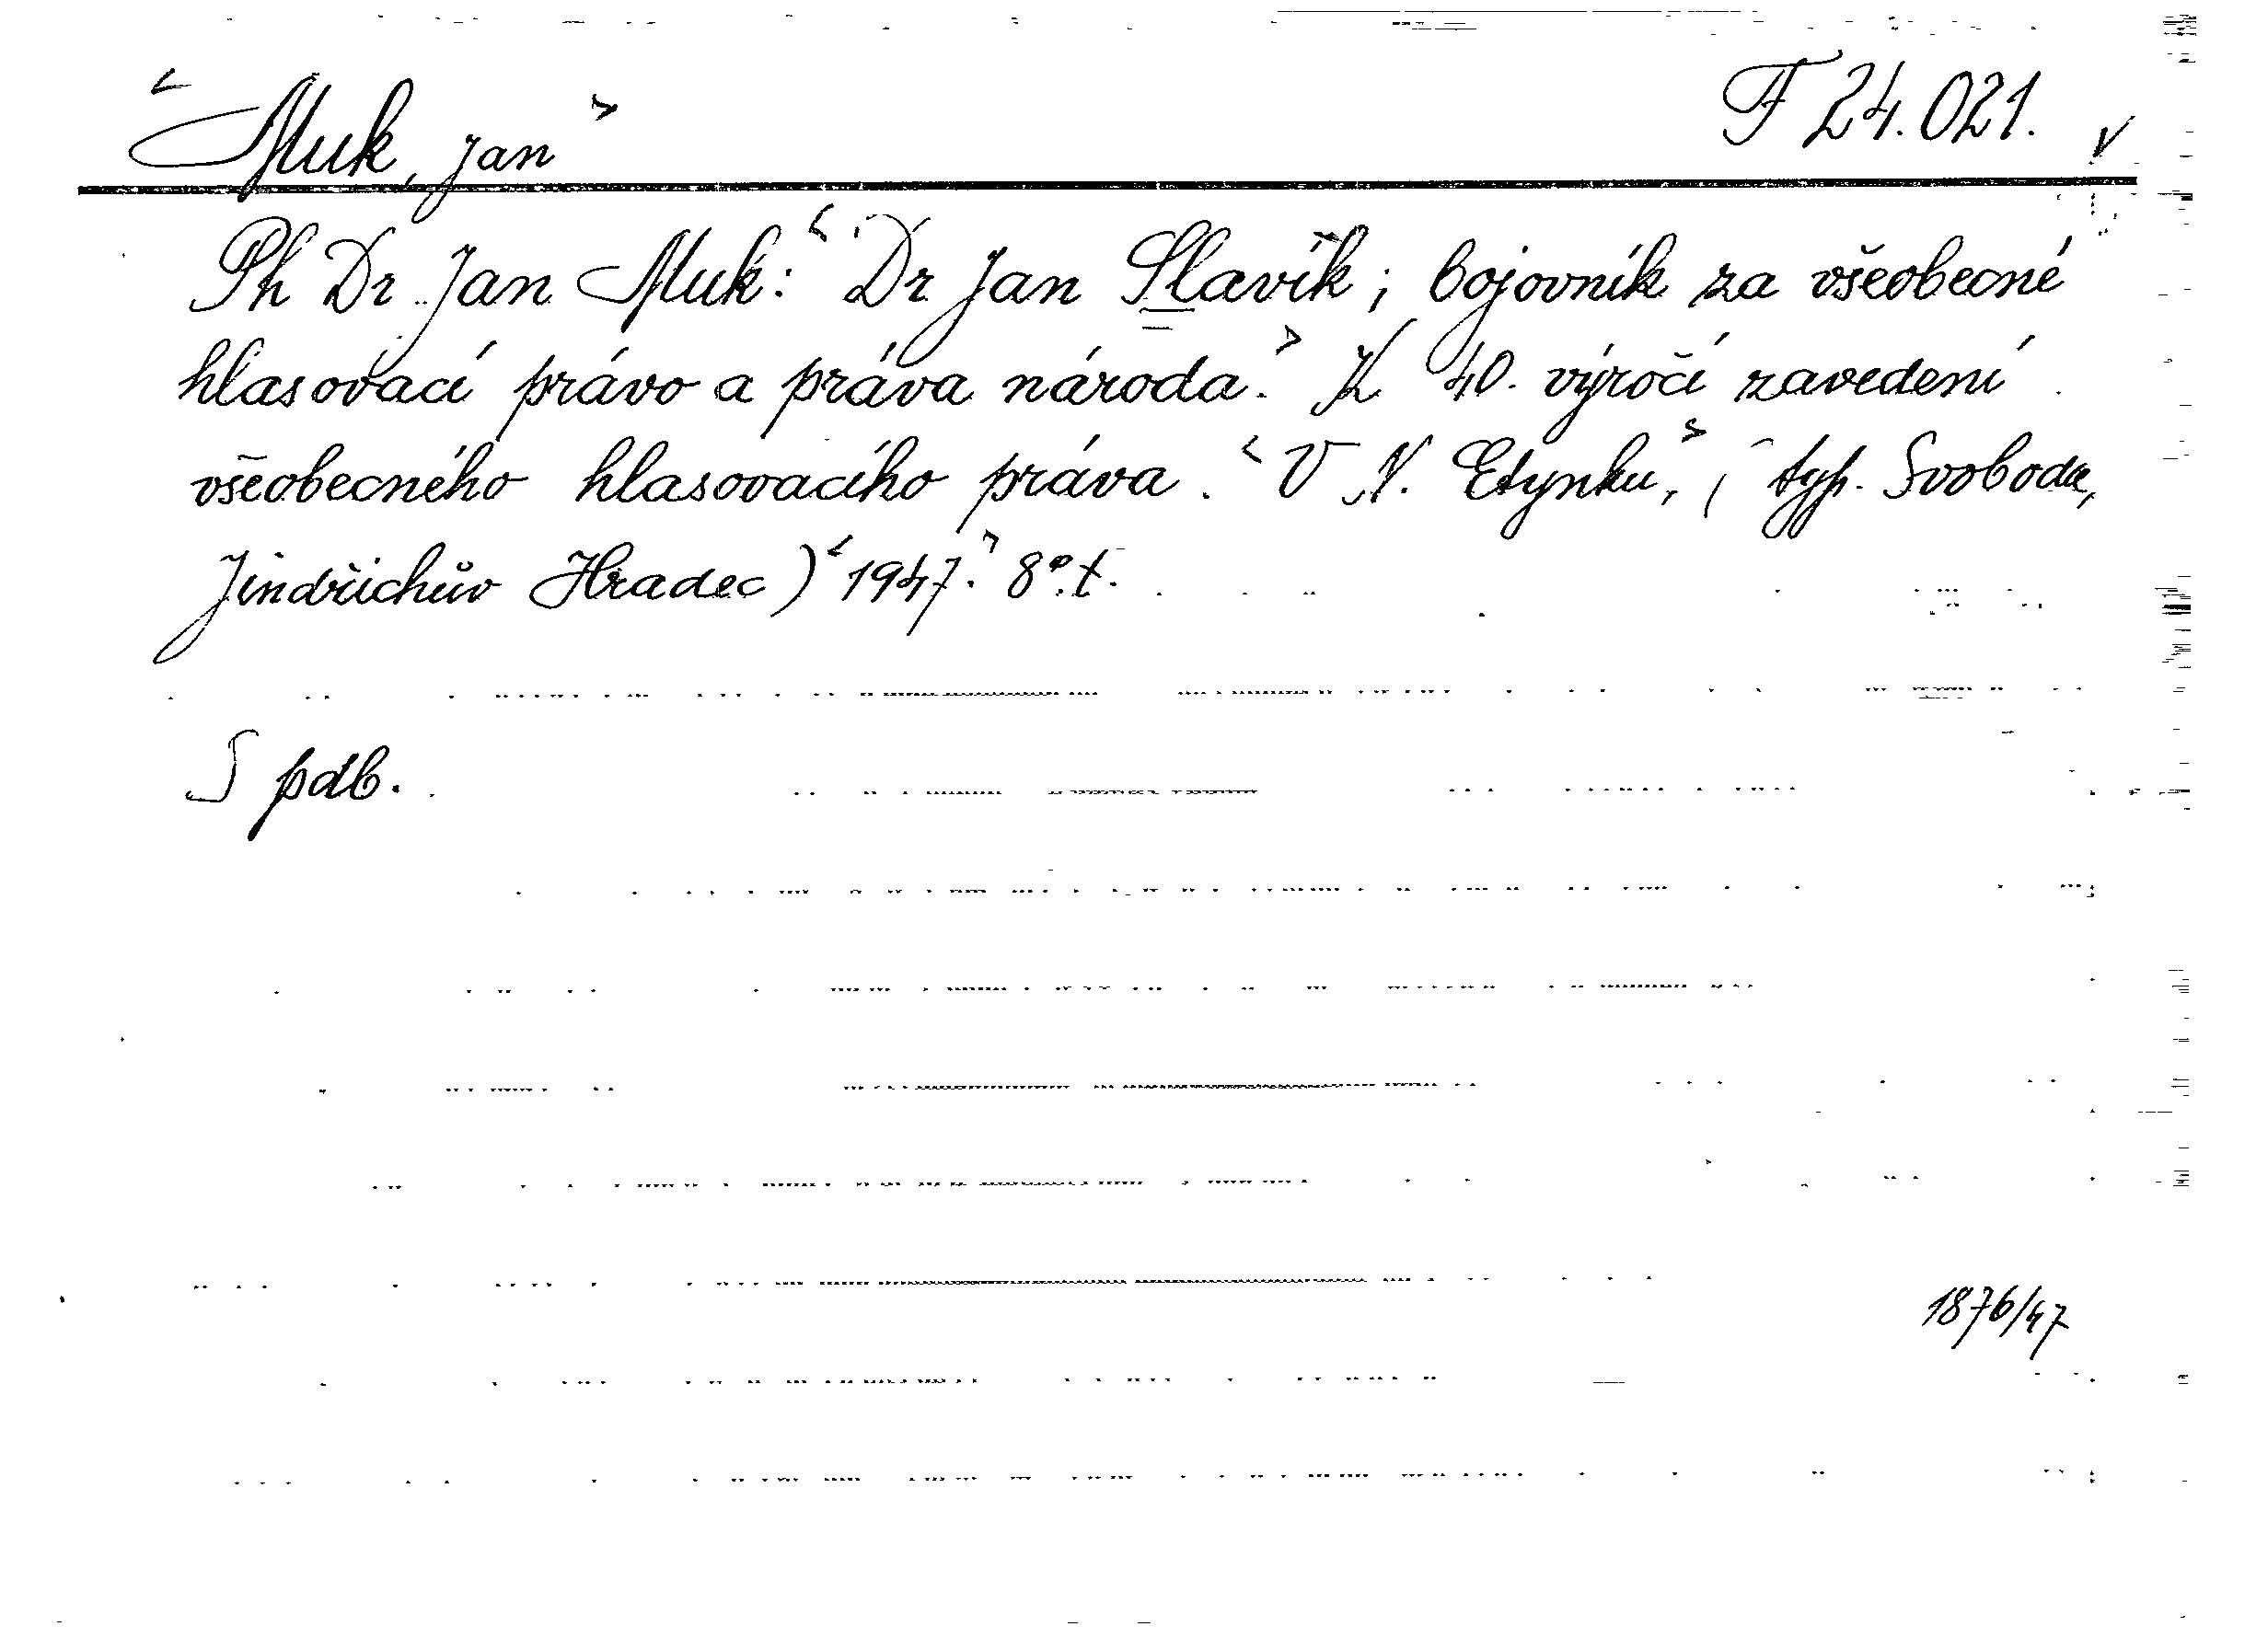 <Muk, Jan>
F 24.021. v
PhDr. Jan Muk: <Dr Jan Slavík; bojovník za všeobecné
hlasovací právo a práva národa.> K 40. výročí zavedení
všeobecného hlasovacího práva. <V N. Etynku,> (typ. Svoboda,
Jindřichův Hradec) <1947.> 8°. t.
S pdb.
1876/47